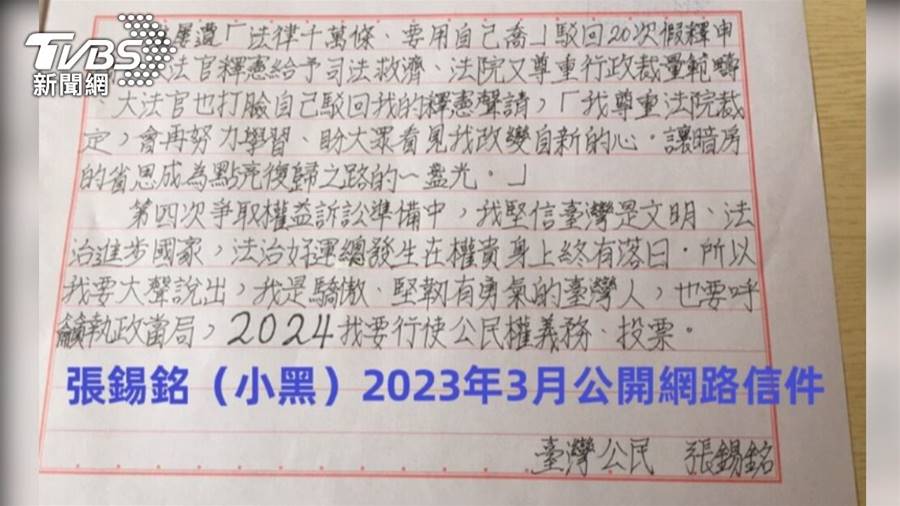 TVBS
新聞網
屢遭「法律千萬條、要用自己喬」駁回20次假釋申
法官釋憲給予司法救濟、法院又尊重行政裁量範疇
、大法官也打臉自己駁回我的釋憲聲請，「我尊重法院裁
定，會再努力學習、盼大眾看見我改變自新的心．讓暗房
的省思成為點亮復歸之路的一盞光．」
第四次爭取權益訴訟準備中，我堅信臺灣是文明、法
治進步國家，法治好運總發生在權貴身上終有落日．所以
我要大聲說出，我是驕傲、堅韌有勇氣的臺灣人，也要呼
籲執政當局，2024我要行使公民權義務、投票。
張錫銘（小黑）2023年3月公開網路信件
臺灣公民 張錫銘